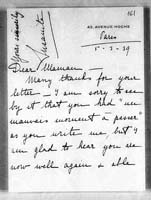 161
Yours sincerely
43, AVENUE HOCHE
Paris
5-3-39
Dear Maman —
Many thanks for your
letter — I am sorry to see
by it that you had "un
mauvais moment à passer"
as you write me, but I
am glad to hear you are
now well again & able